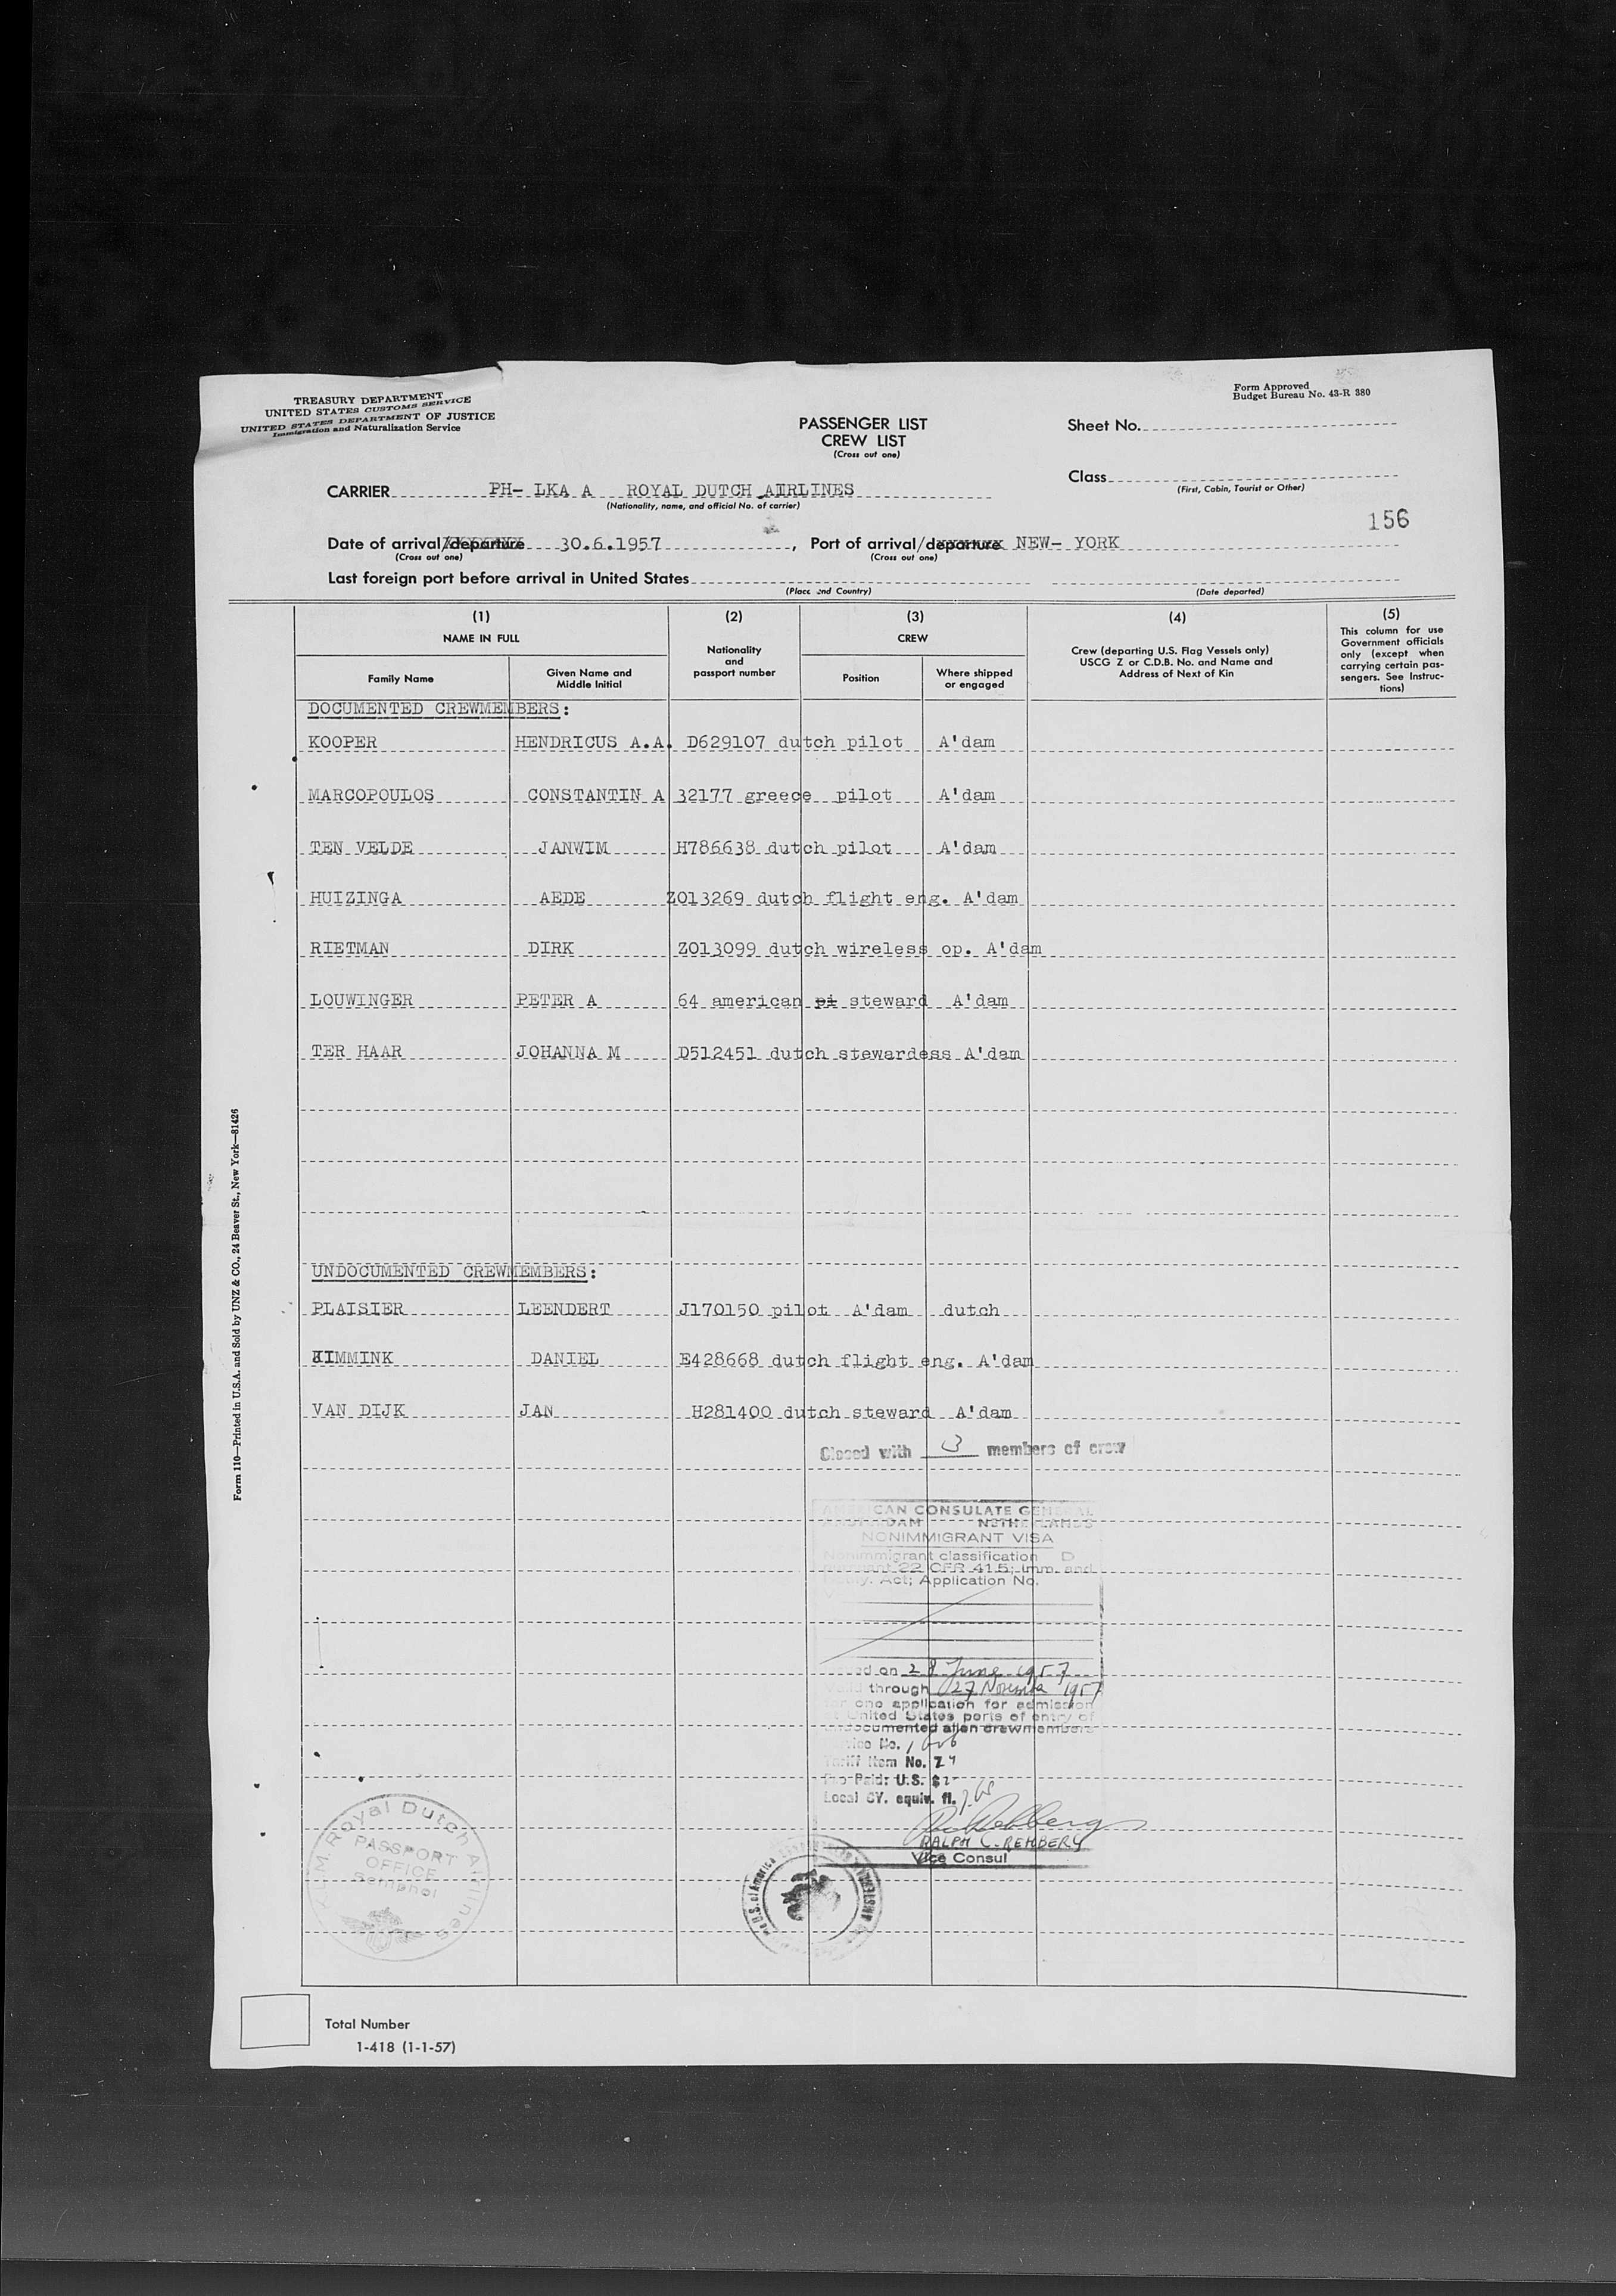 TREASURY DEPARTMENT
UNITED STATES CUSTOMS SERVICE
UNITED STATES DEPARTMENT OF JUSTICE
Immigration and Naturalization Service
Form Approved
Budget Bureau No. 43-R 380
PASSENGER LIST
CREW LIST
(Cross out one)
Sheet No.
Class
(First, Cabin, Tourist or Other)
CARRIER PH- LKA A ROYAL DUTCH AIRLINES
(Nationality, name, and official No. of carrier)
156
Date of arrival/departure 30.6.1957, Port of arrival/departure NEW- YORK
(Cross out one) (Cross out one)
Last foreign port before arrival in United States
(Place and Country) (Date departed)
(1) (2) (3) (4) (5)
NAME IN FULL
Family Name
Given Name and
Middle Initial
Nationality
and
passport number
CREW
Position
Where shipped
or engaged
Crew (departing U.S. Flag Vessels only)
USCG Z or C.D.B. No. and Name and
Address of Next of Kin
This column for use
Government officials
only (except when
carrying certain pas-
sengers. See Instruc-
tions)
DOCUMENTED CREWMEMBERS:
KOOPER HENDRICUS A.A. D629107 dutch pilot A'dam
MARCOPOULOS CONSTANTIN A 32177 greece pilot A'dam
TEN VELDE JANWIM H786638 dutch pilot A'dam
HUIZINGA AEDE Z013269 dutch flight eng. A'dam
RIETMAN DIRK Z013099 dutch wireless op. A'dam
LOUWINGER PETER A 64 american pi steward A'dam
TER HAAR JOHANNA M D512451 dutch stewardess A'dam
UNDOCUMENTED CREWMEMBERS:
PLAISIER LEENDERT J170150 pilot A'dam dutch
IMMINK DANIEL E428668 dutch flight eng. A'dam
VAN DIJK JAN H281400 dutch steward A'dam
Closed with 3 members of crew
AMERICAN CONSULATE GENERAL
NETHERLANDS
NONIMMIGRANT VISA
Nonimmigrant classification D
22 CFR 41.5; Imm. and
Act; Application No.
on 28 June 1957
through 27 November 1957
for one application for admission
at United States ports of entry of
undocumented alien crewmembers
No.
Tariff Item No. 24
Paid: U.S. $
Local CY. equiv. fl.
RALPH C. REHBERG
Vice Consul
K.L.M. Royal Dutch Airlines
PASSPORT
OFFICE
Schiphol
U.S. of America
Form 110—Printed in U.S.A. and Sold by UNZ & CO., 24 Beaver St., New York—81426
Total Number
1-418 (1-1-57)